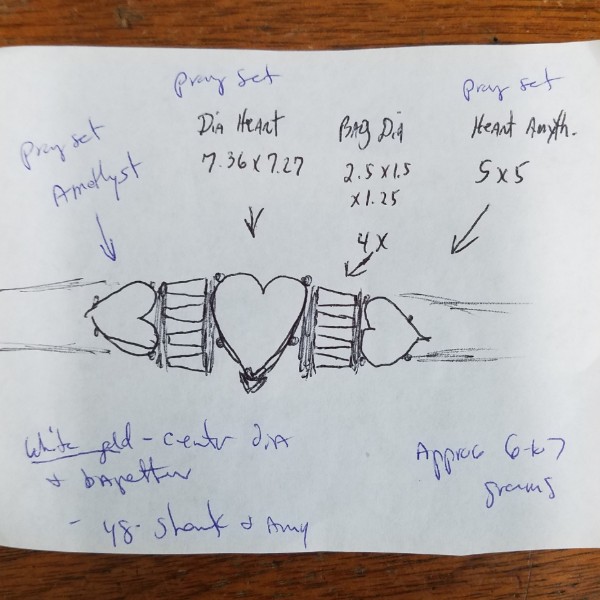 prong set
Amethyst
prong set
Dia Heart
7.36 x 7.27
BAG Dia
2.5 x 1.5
x 1.25
4 x
prong set
Heart Amyth.
5 x 5
White gold - center dia
& bagettes
- yg - shank & Amy
Approx 6-to 7
grams